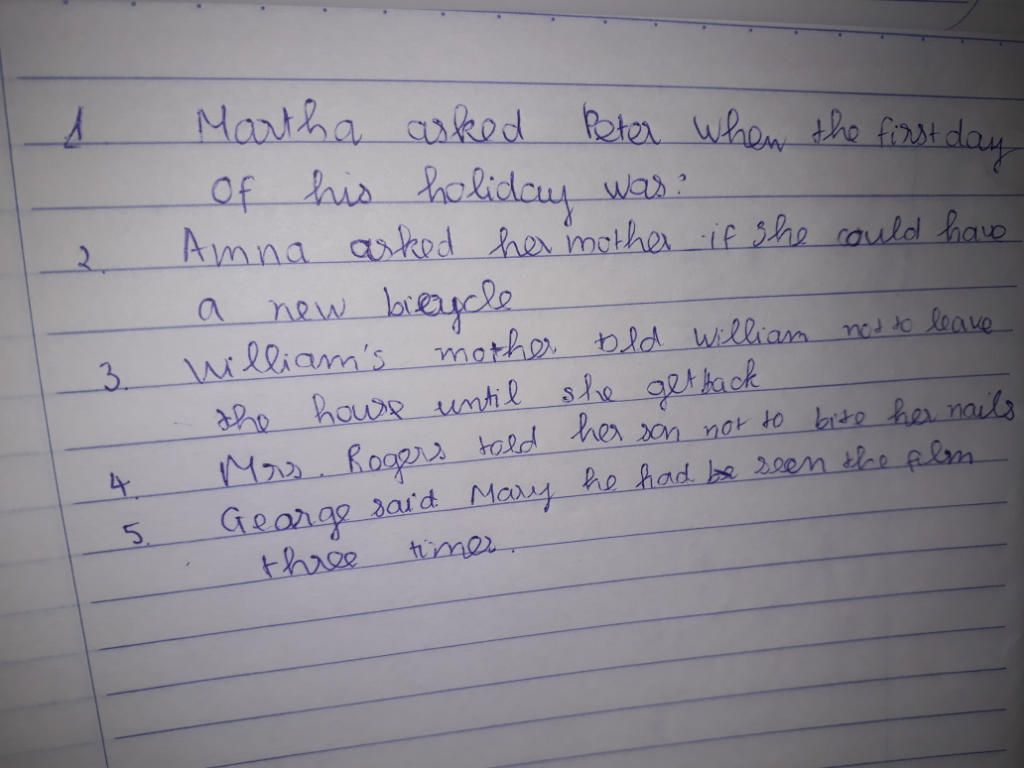 1 Martha asked Peter when the first day
of his holiday was:
2. Amna asked her mother if she could have
a new bicycle
3. William's mother told William not to leave
the house until she get back
4. Mrs. Rogers told her son not to bite her nails
5. George said Mary he had be seen the film
three times.